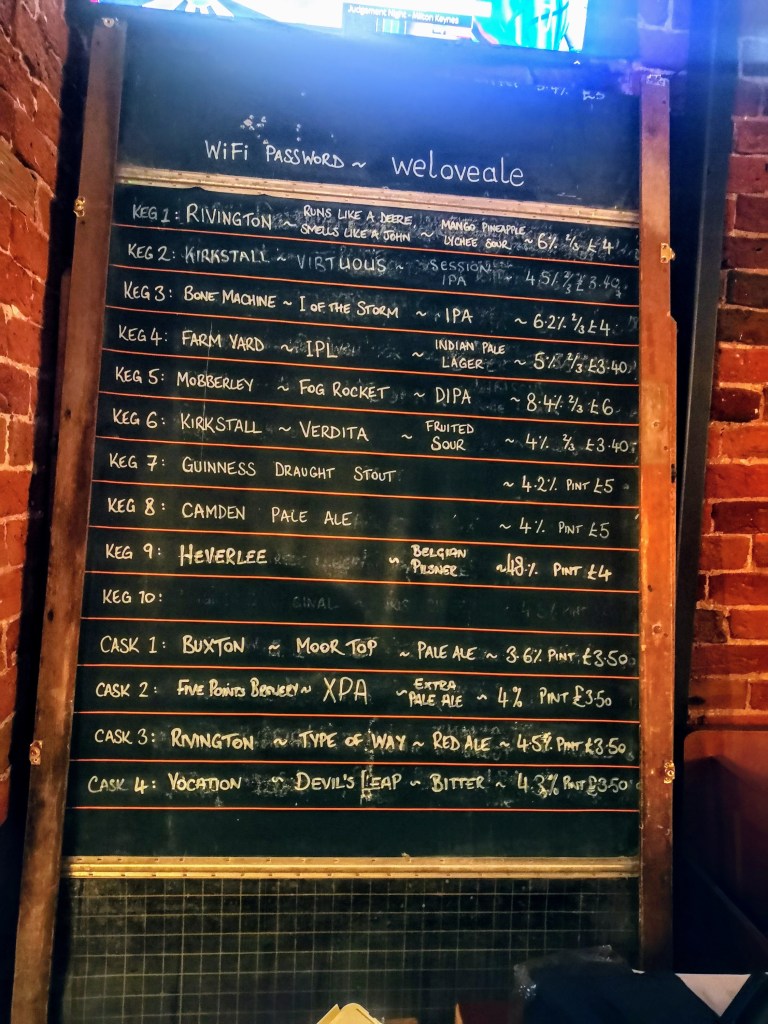 Judgement Night - Milton Keynes
WiFi PASSWORD ~ weloveale
KEG 1: RIVINGTON ~ RUNS LIKE A DEERE SMELLS LIKE A JOHN ~ MANGO PINEAPPLE LYCHEE SOUR ~ 6% 2/3 £4
KEG 2: KIRKSTALL ~ VIRTUOUS ~ SESSION IPA ~ 4.5% 2/3 £3.40
KEG 3: BONE MACHINE ~ I OF THE STORM ~ IPA ~ 6.2% 2/3 £4
KEG 4: FARM YARD ~ IPL ~ INDIAN PALE LAGER ~ 5% 2/3 £3.40
KEG 5: MOBBERLEY ~ FOG ROCKET ~ DIPA ~ 8.4% 2/3 £6
KEG 6: KIRKSTALL ~ VERDITA ~ FRUITED SOUR ~ 4% 2/3 £3.40
KEG 7: GUINNESS DRAUGHT STOUT ~ 4.2% PINT £5
KEG 8: CAMDEN PALE ALE ~ 4% PINT £5
KEG 9: HEVERLEE ~ BELGIAN PILSNER ~ 4.8% PINT £4
KEG 10:
CASK 1: BUXTON ~ MOOR TOP ~ PALE ALE ~ 3.6% PINT £3.50
CASK 2: FIVE POINTS BREWERY ~ XPA ~ EXTRA PALE ALE ~ 4% PINT £3.50
CASK 3: RIVINGTON ~ TYPE OF WAY ~ RED ALE ~ 4.5% PINT £3.50
CASK 4: VOCATION ~ DEVIL'S LEAP ~ BITTER ~ 4.3% PINT £3.50